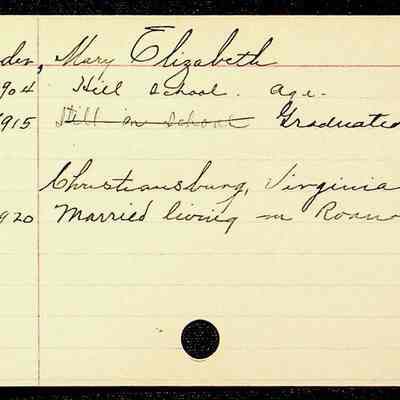 der, Mary Elizabeth
904 Hill School. age.
1915 Still in School Graduated
Christiansburg, Virginia
920 Married living in Roano